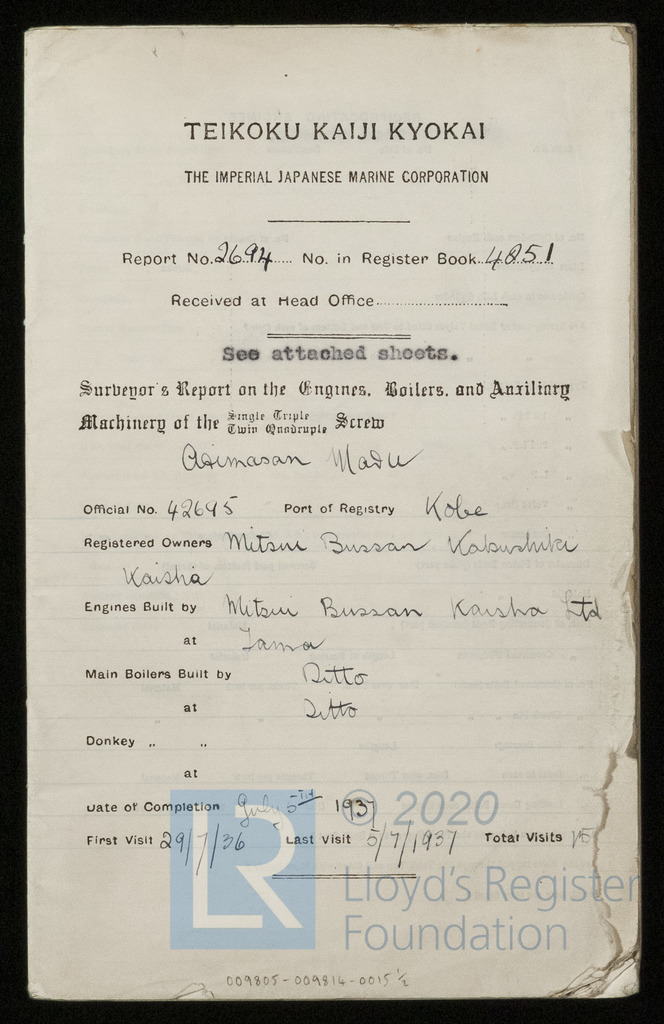 TEIKOKU KAIJI KYOKAI
THE IMPERIAL JAPANESE MARINE CORPORATION
Report No. 2694 No. in Register Book 4051
Received at Head Office
See attached sheets.
Surveyor's Report on the Engines, Boilers, and Auxiliary
Machinery of the Single Triple Twin Quadruple Screw
Asimasan Madu
Official No. 42695 Port of Registry Kobe
Registered Owners Mitsui Bussan Kabushiki
Kaisha
Engines Built by Mitsui Bussan Kaisha Ltd
at Tama
Main Boilers Built by Ditto
at Ditto
Donkey „ „
at
Date of Completion July 5TH 1937
First Visit 29/7/36 Last Visit 5/7/1937 Total Visits 15
LR
© 2020
Lloyd's Register
Foundation
009805-009814-0015½